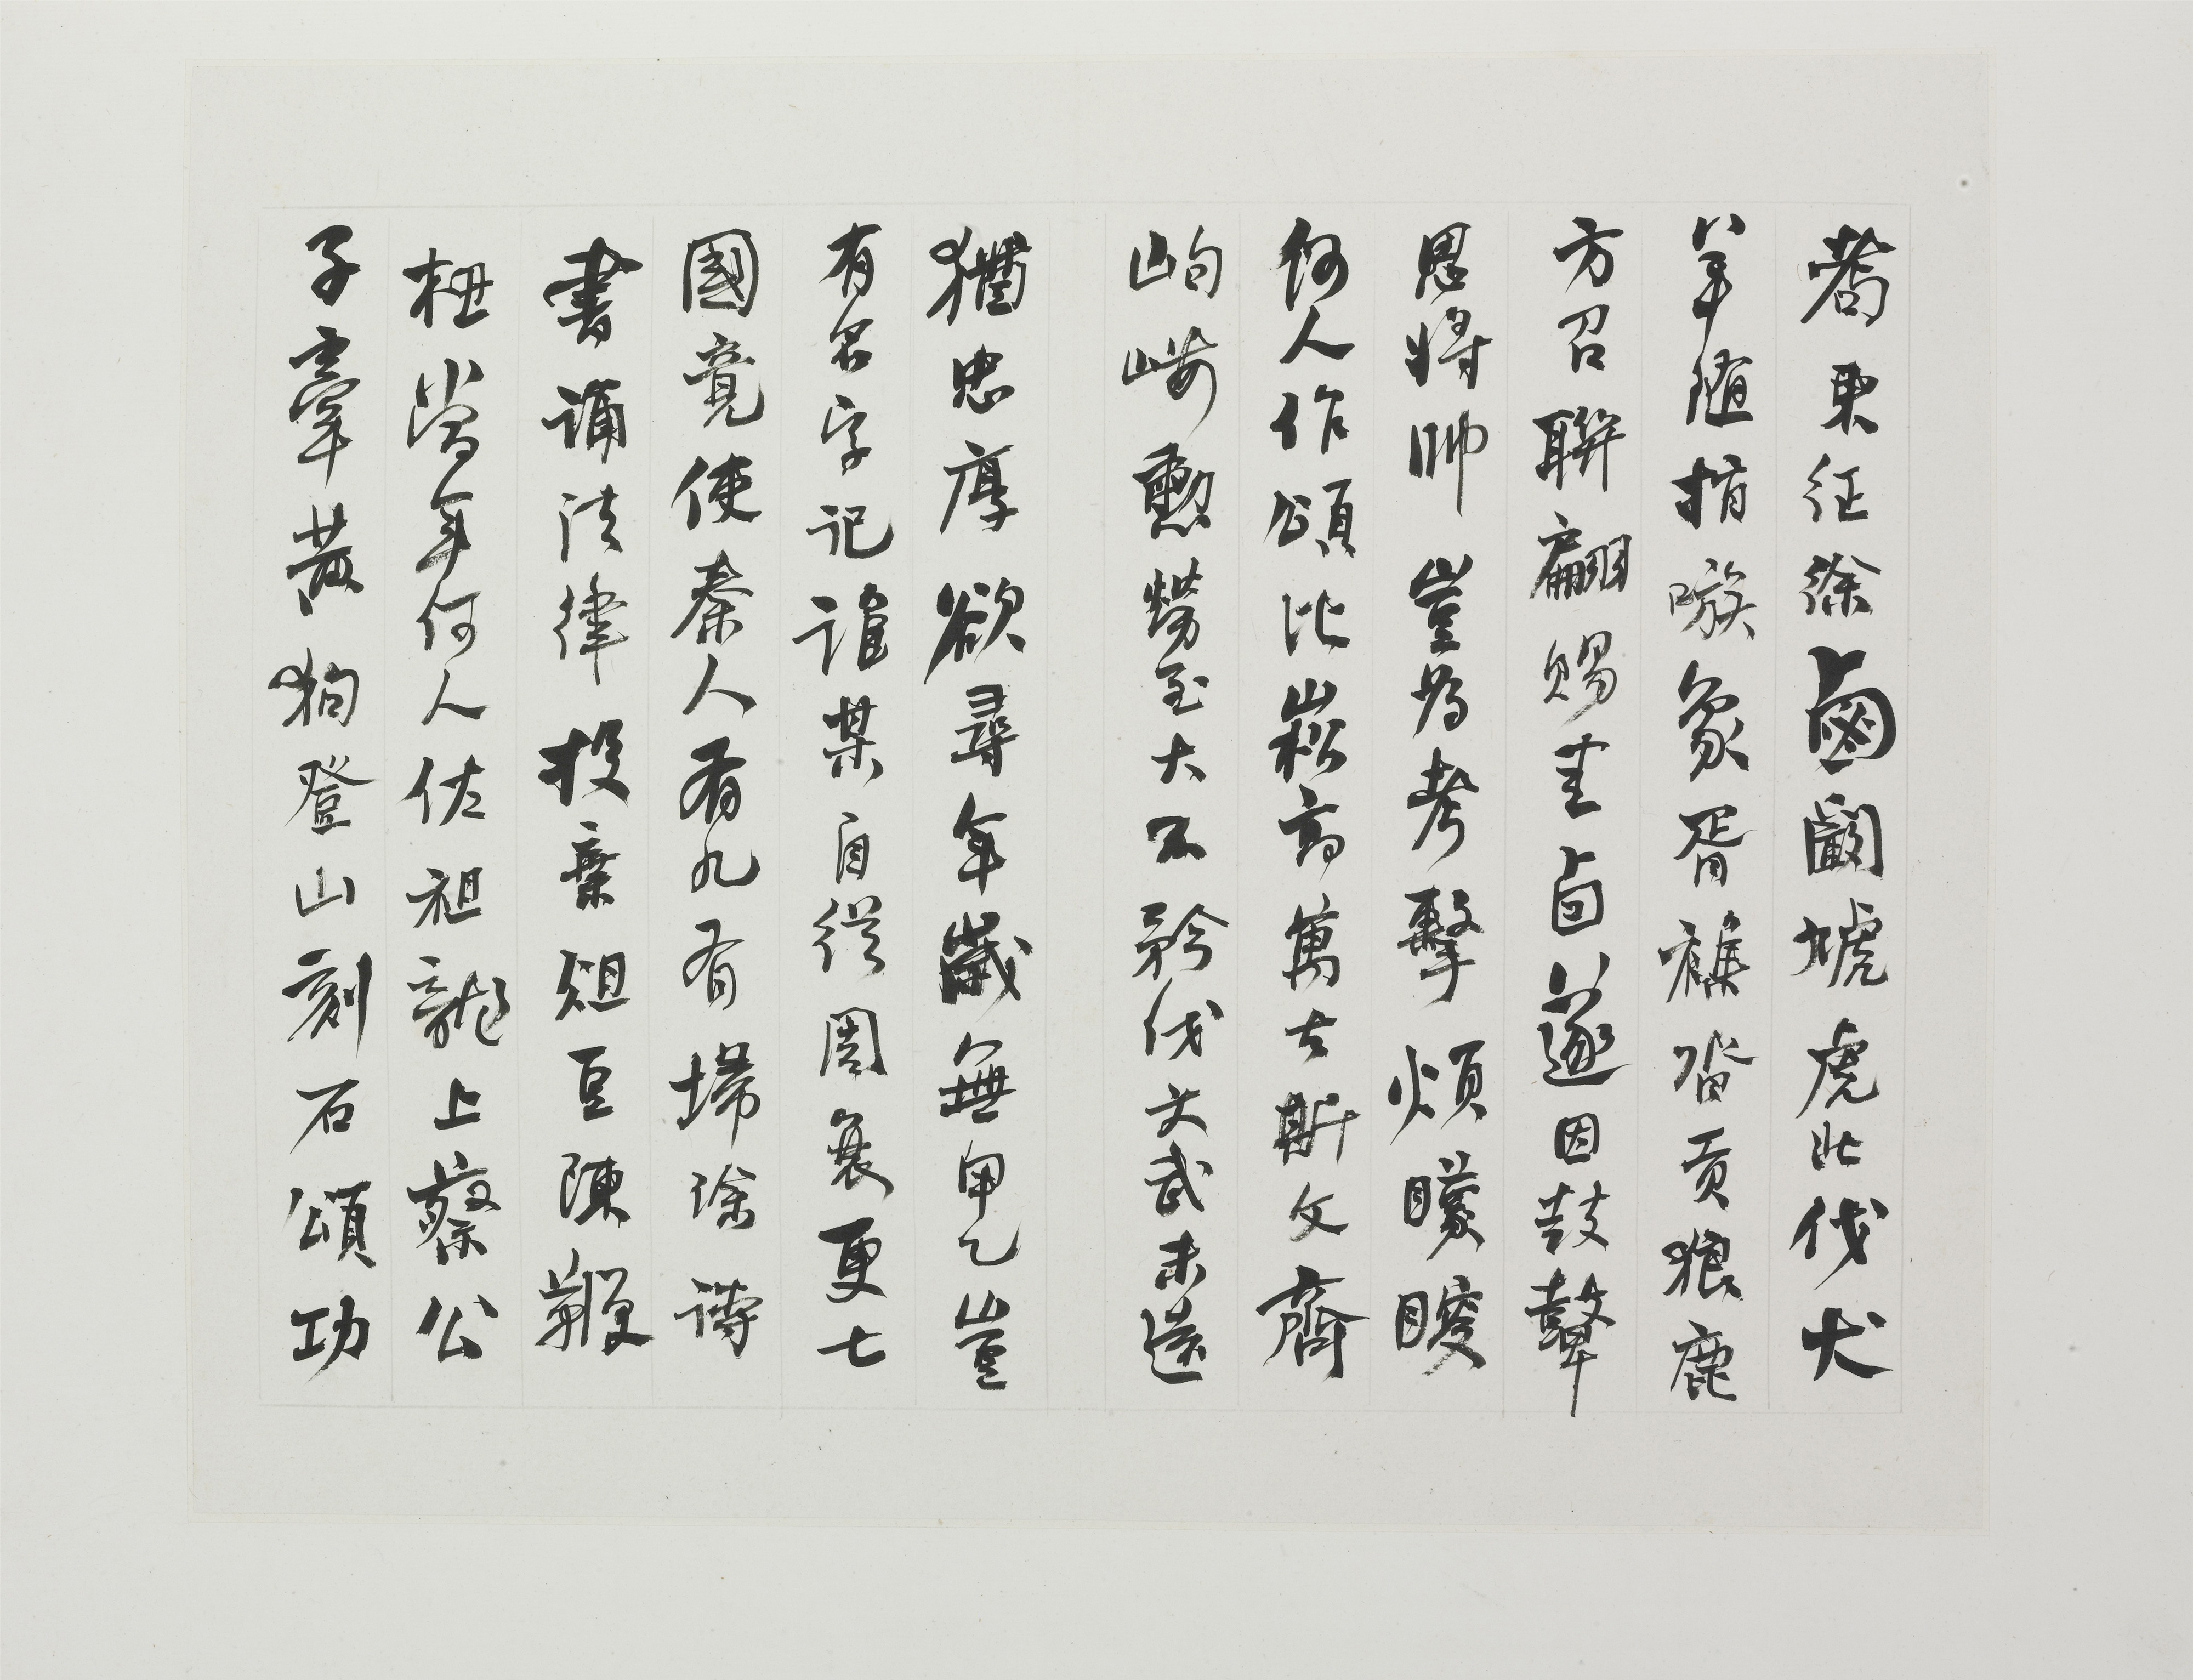 耇東征徐鹵闞虓虎北伐犬
羊隨指嗾象胥雜沓貢狼鹿
方召聯翩賜圭卣遂因鼓鼙
思將帥豈為考擊煩矇瞍
何人作頌比崧高萬古斯文齊
岣嶁勳勞至大不矜伐文武未遠
猶忠厚欲尋年歲無甲乙豈
有名字記誰某自從周衰更七
國竟使秦人有九有掃除詩
書誦法律投棄俎豆陳鞭
杻當年何人佐祖龍上蔡公
子牽黃狗登山刻石頌功